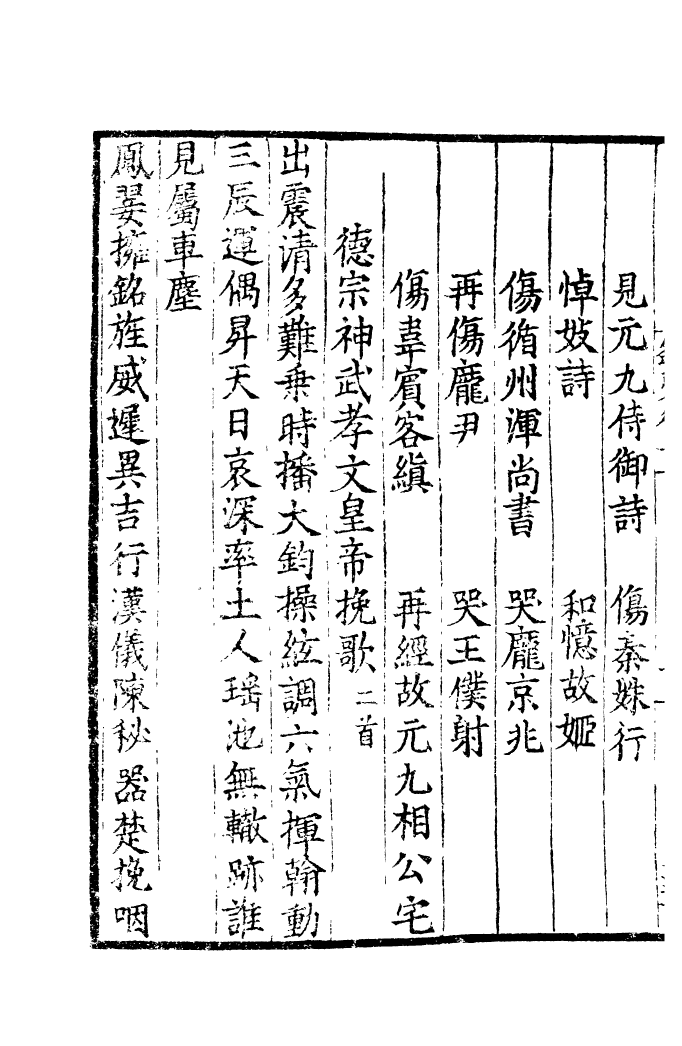 見元九侍御詩　傷秦姝行
悼妓詩　和憶故姬
傷循州渾尚書　哭龐京兆
再傷龐尹　哭王僕射
傷韋賓客縝　再經故元九相公宅
德宗神武孝文皇帝挽歌二首
出震清多難乗時播大鈞操絃調六氣揮翰動
三辰運偶昇天日哀深率土人瑶池無轍跡誰
見屬車塵
鳳翣擁銘旌威遲異吉行漢儀陳秘器楚挽咽